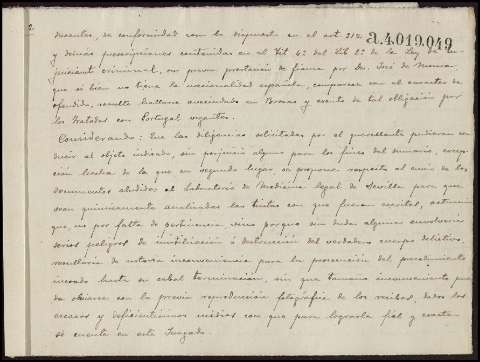 2
a.4.019.049
ducentes, de conformidad con lo dispuesto en el art. 312
y demás prescripciones contenidas en el Tít. 4º del Lib. 2º de la Ley de En-
juiciamiento criminal, sin previa prestación de fianza por Dn. José de
que si bien no tiene la nacionalidad española, comparece con el carácter de
ofendido, resulta hallarse avecindado en Bornos y exento de tal obligación por
los Tratados con Portugal vigentes.
Considerando: Que las diligencias solicitadas por el querellante pudieran con-
ducir al objeto indicado, sin perjuicio alguno para los fines del sumario, excep-
ción hecha de la que en segundo lugar se propone respecto al envío de los
documentos aludidos al Laboratorio de Medicina legal de Sevilla para que
sean químicamente analizadas las tintas con que fueron escritos,
que, no por falta de pertinencia sino porque sin duda alguna envolvería
serios peligros de inutilización o destrucción del verdadero cuerpo delictivo,
resultaría de notoria inconveniencia para la prosecución del procedimiento
incoado hasta su cabal terminación, sin que tamaño inconveniente pue-
da obviarse con la previa reproducción fotográfica de los recibos, dados los
escasos y deficientísimos medios con que para lograrla fiel y exacta
se cuenta en este Juzgado.